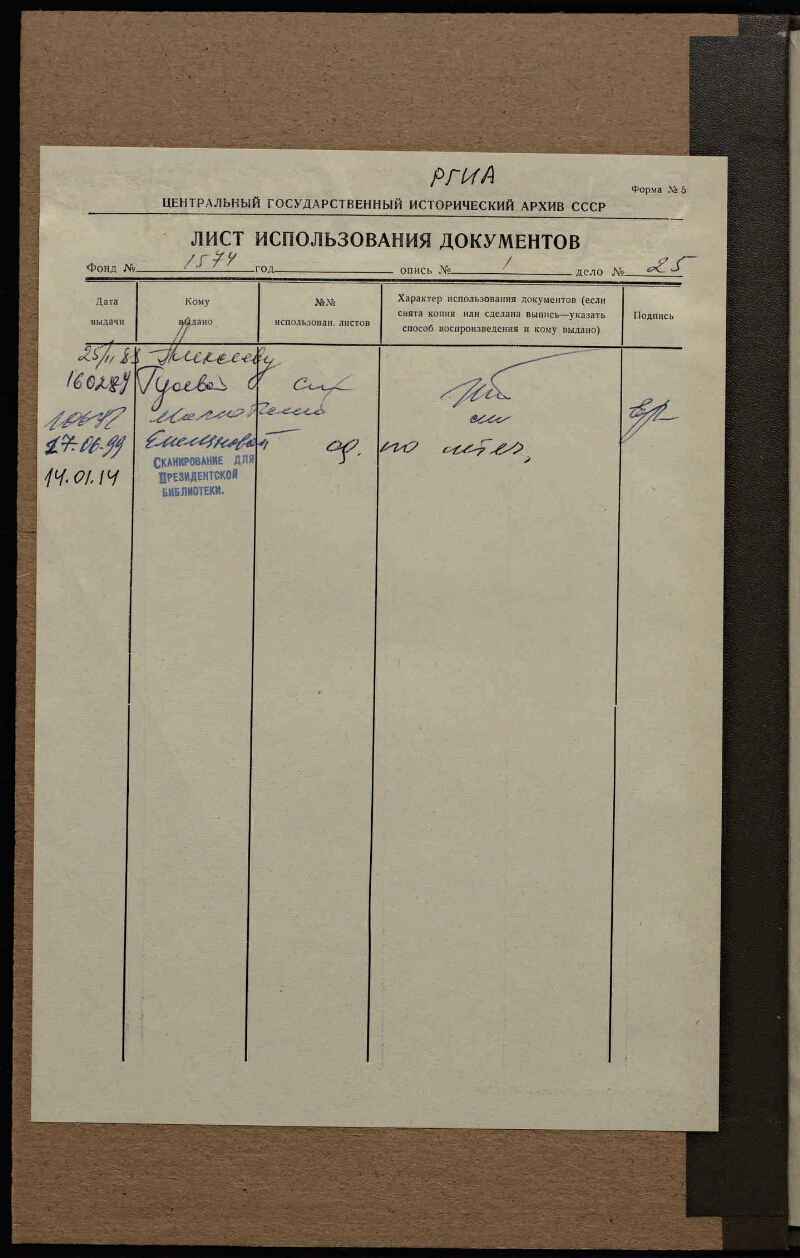 РГИА
Форма № 5
ЦЕНТРАЛЬНЫЙ ГОСУДАРСТВЕННЫЙ ИСТОРИЧЕСКИЙ АРХИВ СССР
ЛИСТ ИСПОЛЬЗОВАНИЯ ДОКУМЕНТОВ
Фонд № 1574 год опись № 1 дело № 25
Дата выдачи
Кому выдано
№№ использован. листов
Характер использования документов (если
снята копия или сделана выпись—указать
способ воспроизведения и кому выдано)
Подпись
Алексееву
160284 Гусевой
27.06.99 Емельяновой
14.01.14
СКАНИРОВАНИЕ ДЛЯ
ПРЕЗИДЕНТСКОЙ
БИБЛИОТЕКИ.